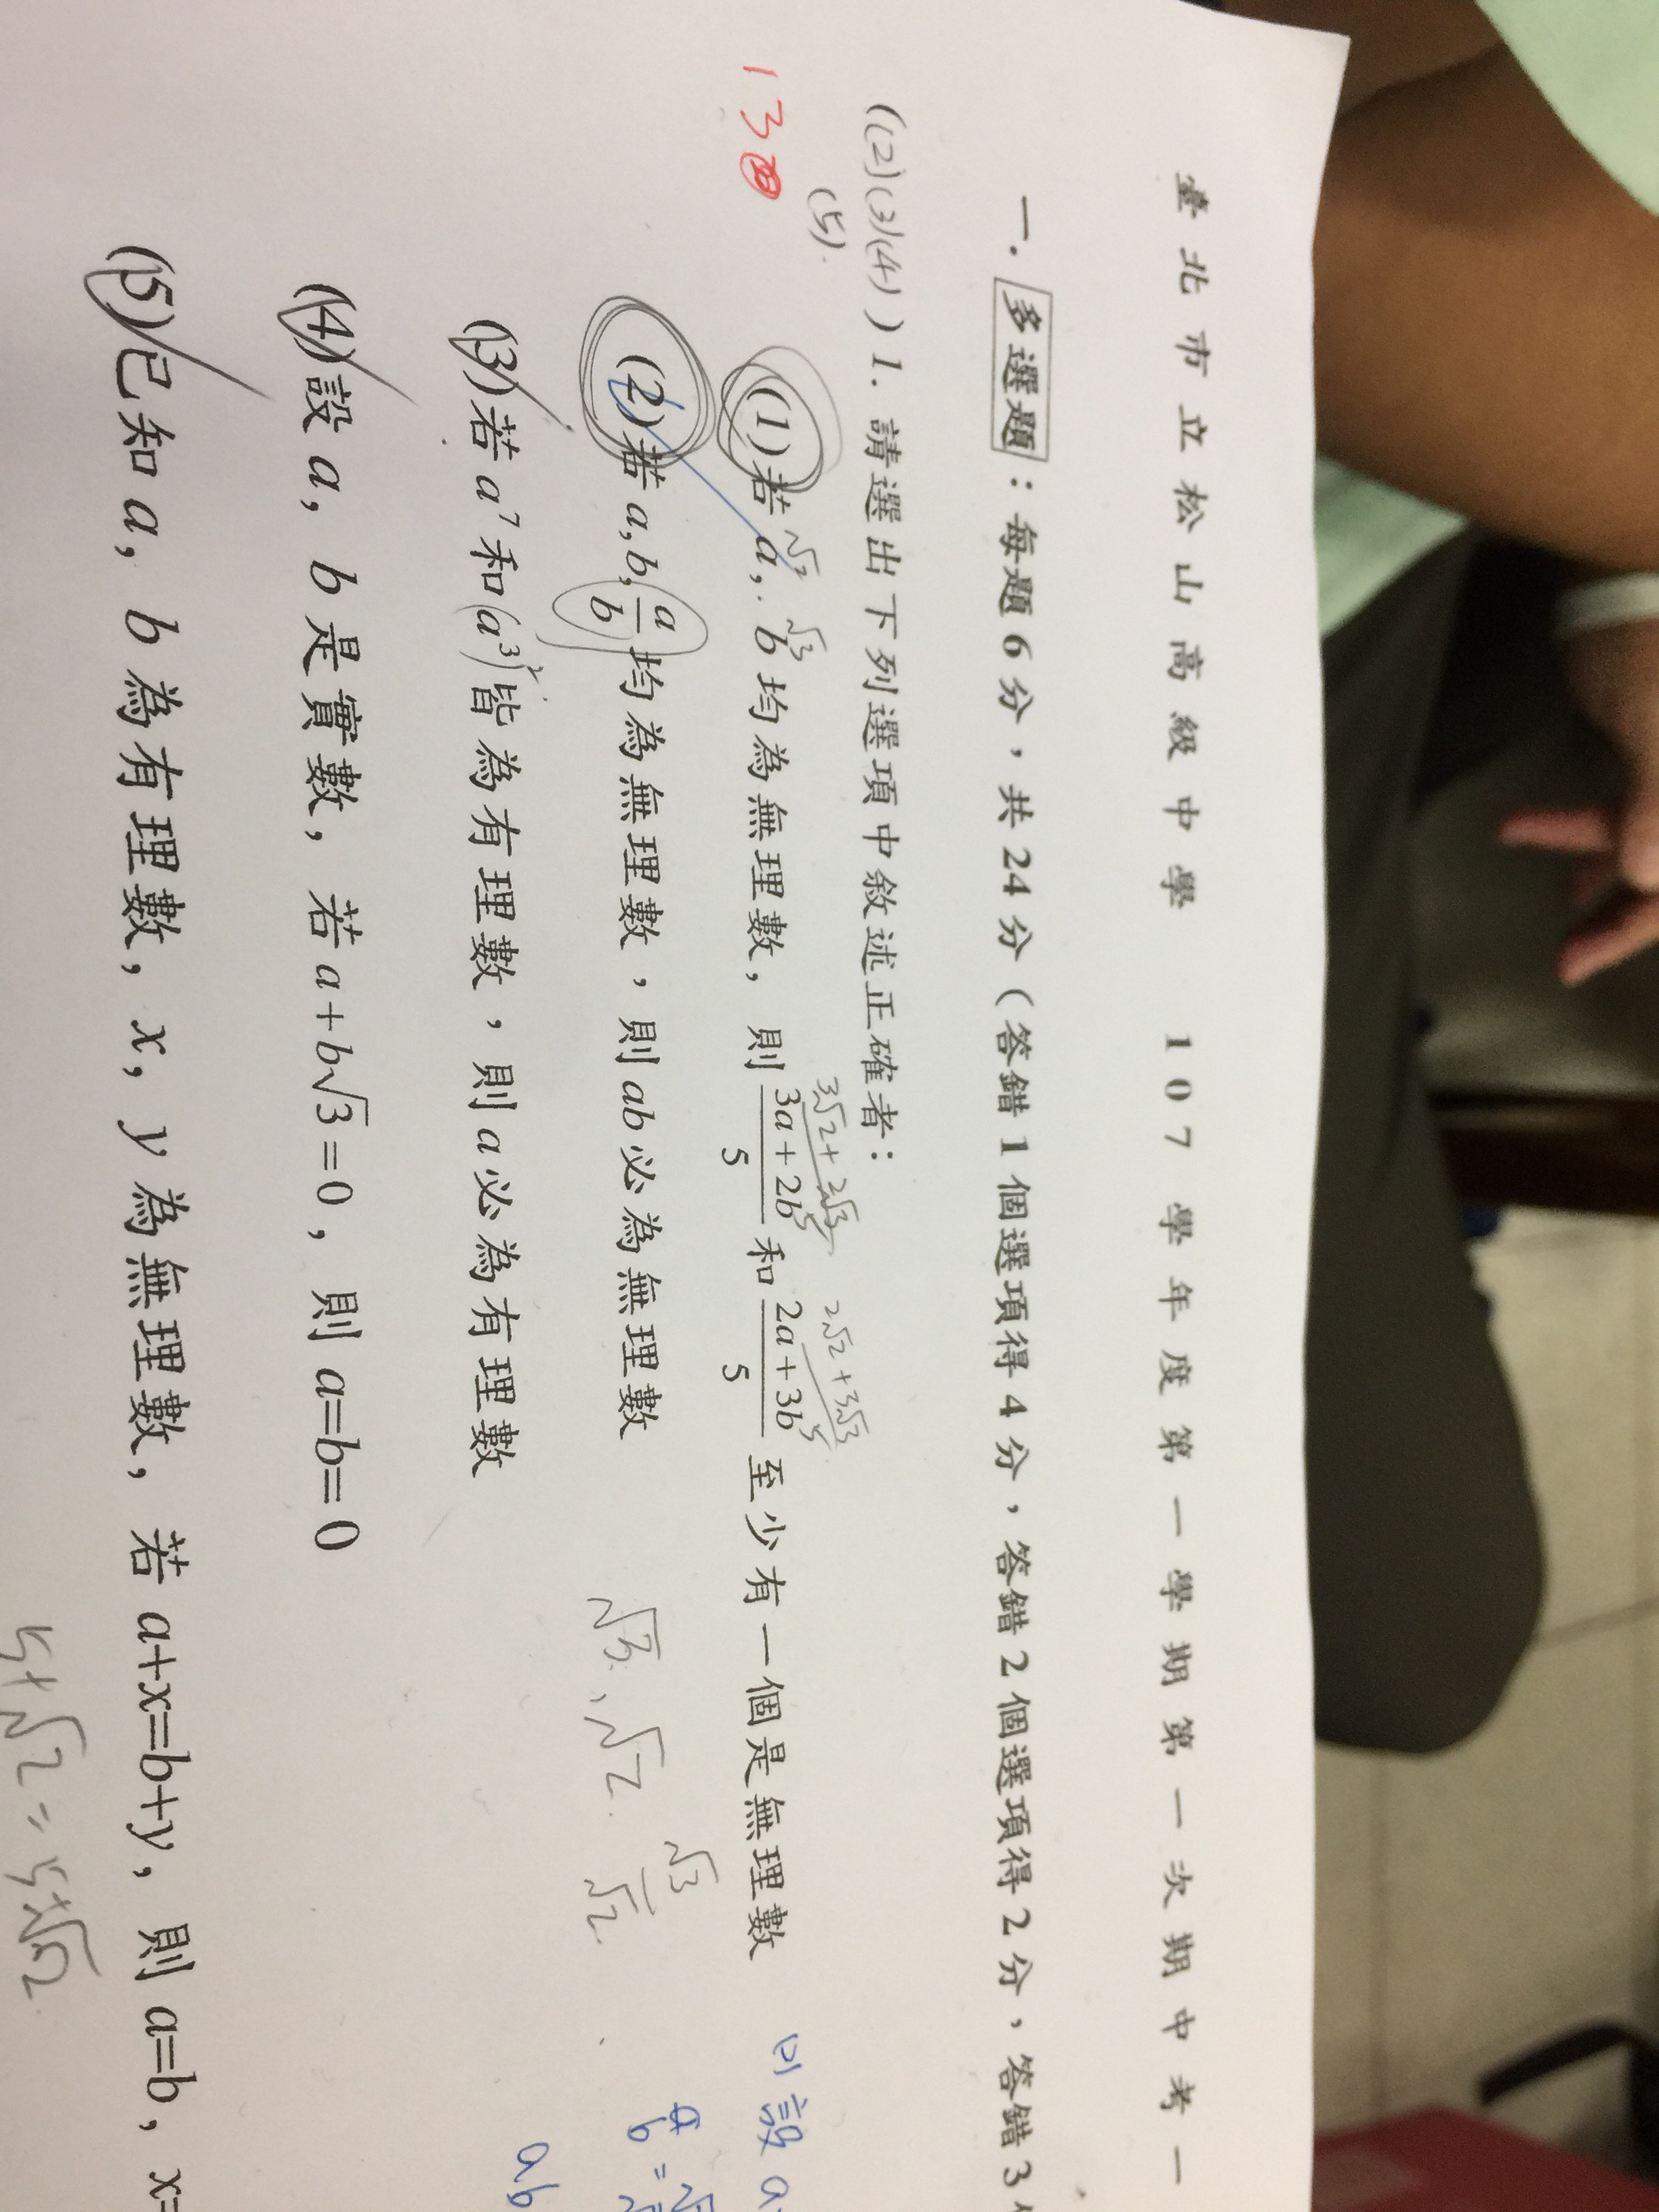 臺北市立松山高級中學 107學年度第一學期第一次期中考
一. 多選題:每題6分,共24分(答錯1個選項得4分,答錯2個選項得2分,答錯3
((2)(3)(4) ) 1. 請選出下列選項中敘述正確者:
(5).
1 3
√2 √3 3√2+2√3 2√2+3√3
(1)若 a, b 均為無理數, 則 3a+2b/5 和 2a+3b/5 至少有一個是無理數
(1) 設 a
(2)若 a, b, a/b 均為無理數,則 ab 必為無理數
√3、√2. √3/√2.
a/b =
(3)若 a⁷ 和 (a³)² 皆為有理數,則 a 必為有理數
ab
(4)設 a, b 是實數, 若 a+b√3=0, 則 a=b=0
(5)已知 a, b 為有理數, x, y 為無理數, 若 a+x=b+y, 則 a=b, x=
5+√2=5+√2